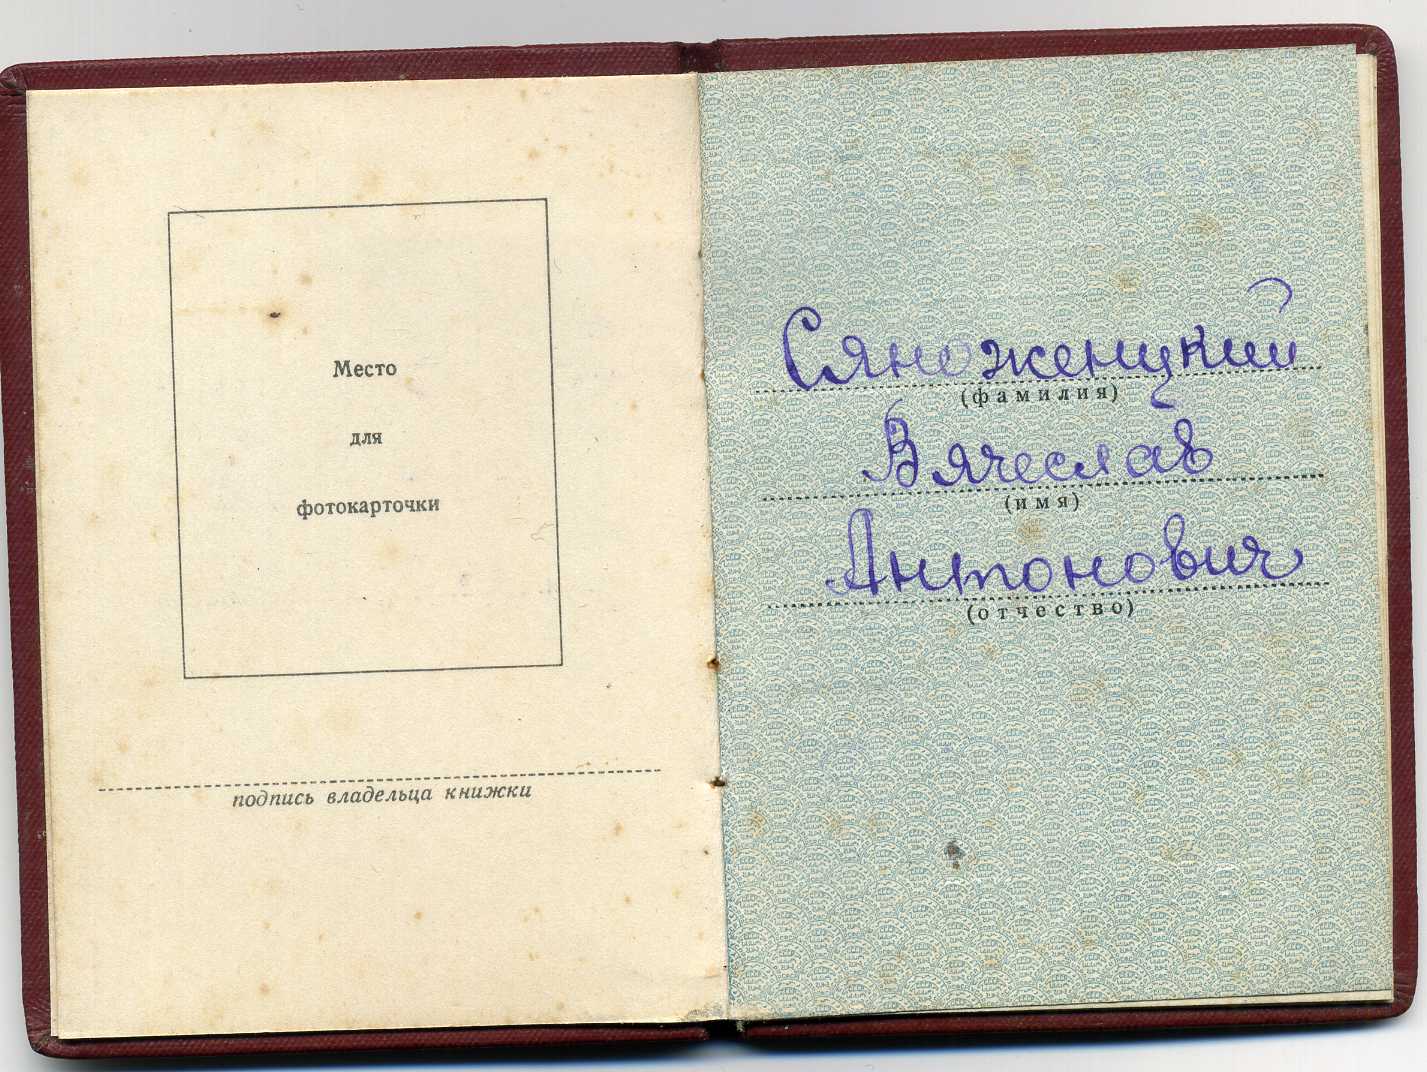 Место
для
фотокарточки
подпись владельца книжки
Сяноженцкий
(фамилия)
Вячеслав
(имя)
Антонович
(отчество)